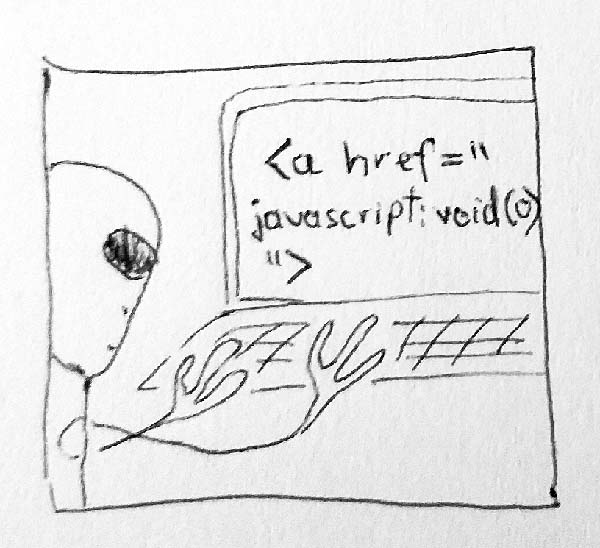 <a href="
javascript:void(0)
">